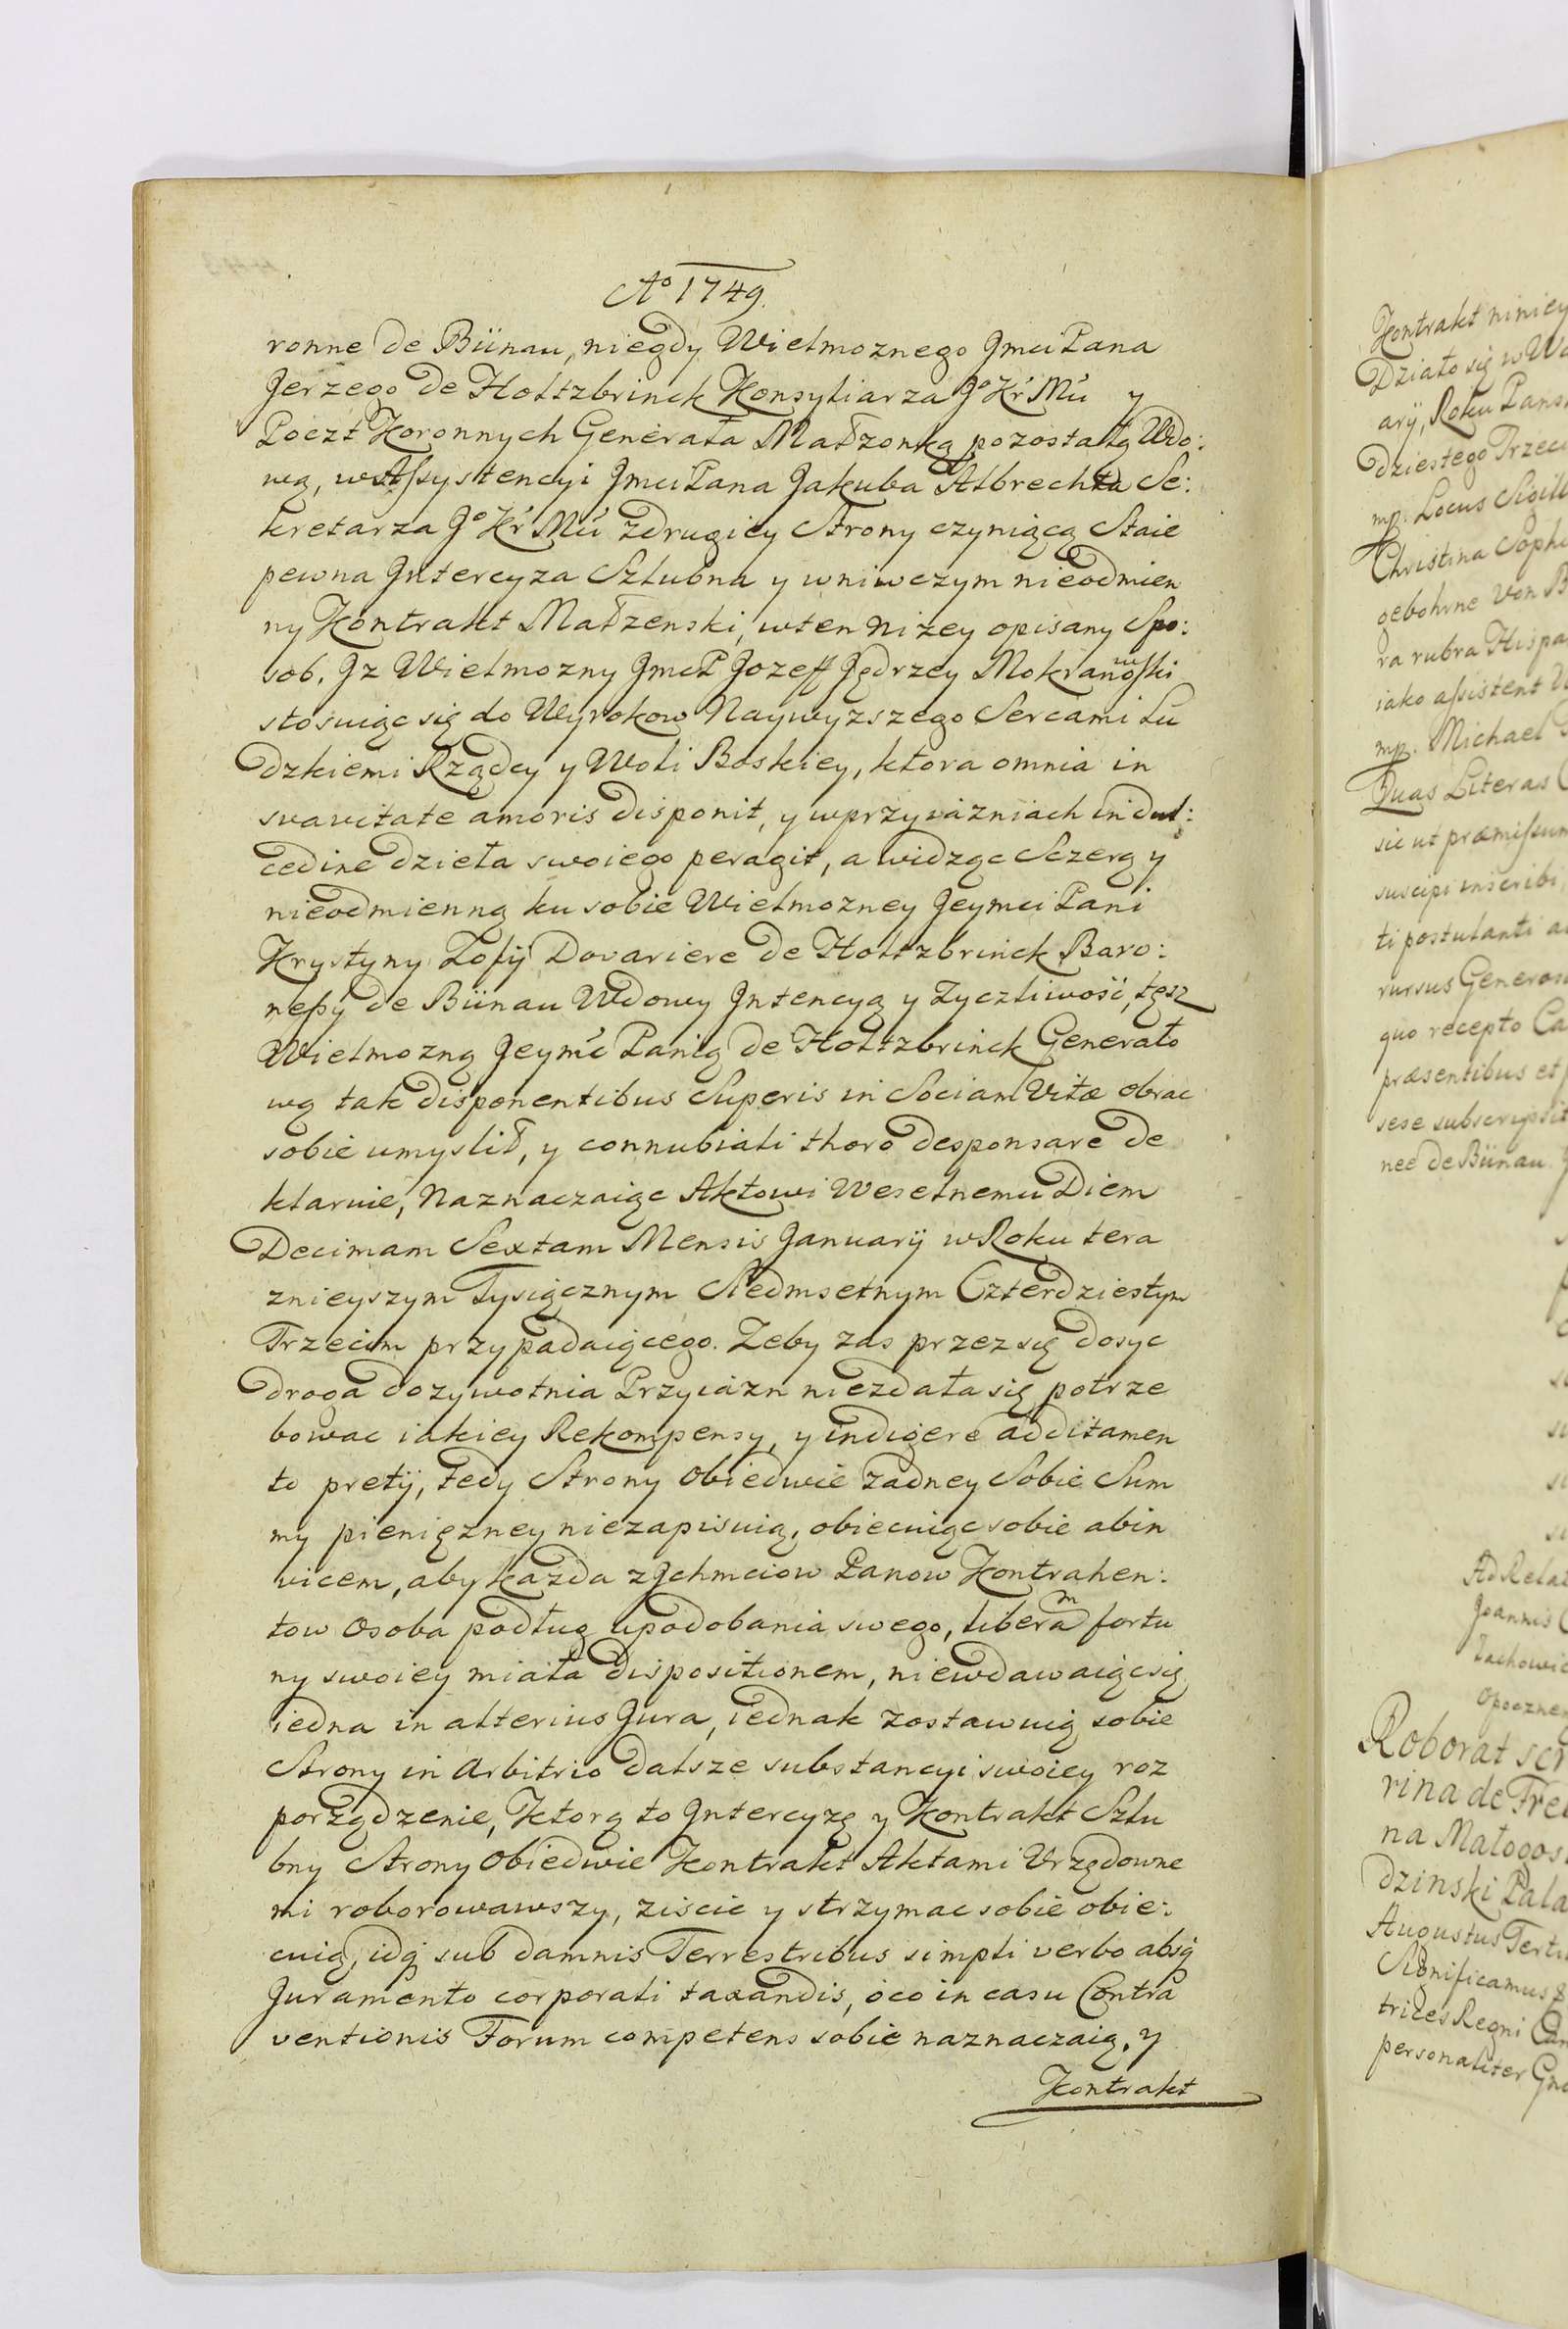 Aº 1749.
ronne de Bünau, niegdy Wielmoznego Jmci Pana
Jerzego de Holtzbrinck Konsyliarza Jº Kr Mci y
Poczt Koronnych Generała Małzonką pozostałą Wdo:
wą, w Assystencyi Jmci Pana Jakuba Albrechta Se:
kretarza Jº Kr Mci z drugiey Strony czyniącą Staie
pewna Jntercyza Szlubna y wniwczym nieodmien
ny Kontrakt Małzenski, wten nizey opisany Spo:
sob. Jz Wielmozny Jmc P Jozeff Jędrzey Mokranowski
stosuiąc się do Wyrokow Naywyzszego Sercami Lu
dzkiemi Rządcy y Woli Boskiey, ktora omnia in
suavitate amoris disponit, y wprzyiazniach in dul:
cedine dzieła swoiego peragit, a widząc Sczerą y
nieodmienną ku sobie Wielmozney Jeymci Pani
Krystyny Zofij Dovariere de Holtzbrinck Baro:
neßy de Bünau Wdowy Jntencyą y Zyczliwość, tęsz
Wielmozną Jeymć Panią de Holtzbrinck Generało
wą tak disponentibus Superis in Sociam Vitæ obrac
sobie umyslił, y connubiali thoro desponsare de
klaruie, Naznaczaiąc Aktowi Weselnemu Diem
Decimam Sextam Mensis Januarij w Roku tera
znieyszym Tysiącznym Siedmsetnym Czterdziestym
Trzecim przypadaiącego. Zeby zas przez się dosyc
droga dozywotnia Przyiazn niezdała się potrze
bowac iakiey Rekompensy, y indigere additamen
to pretij, tedy Strony obiedwie zadney Sobie Sum
my pienięzney niezapisuią, obiecuiąc sobie abin
vicem, aby kazda z Jchmciow Panow Kontrahen:
tow Osoba podług upodobania swego, liberam fortu
ny swoiey miała dispositionem, niewdawaiąc się
iedna in alterius Jura, iednak zostawuią sobie
Strony in Arbitrio dalsze substancyi swoiey roz
porządzenie, Ktorą to Jntercyzę y Kontrakt Szlu
bny Strony obiedwie Kontrakt Aktami Urzędowne
mi roborowawszy, ziscic y strzymac sobie obie:
cuią, idq sub damnis Terrestribus simpli verbo absq
Juramento corporali taxandis, oco in casu Contra
ventionis Forum competens sobie naznaczaią, y
Kontrakt
Kontrakt niniey
Działo się w Wa
arij, Roku Pans
dziestego Trzeci
mp. Locus Sigill
Christina Sophi
gebohrne von B
ra rubra Hispa
iako assistent
mp. Michael
Quas Literas
sic ut præmissum
suscipi inscribi
ti postulanti
rursus Generos
quo recepto Ca
præsentibus et
sese subscripsit
nee de Bünau
Ad Relat
Joannis
Opoczne
Roborat scr
rina de Fre
na Małogos
dzinski Pala
Augustus Terti
Significamus
trices Regni
personaliter